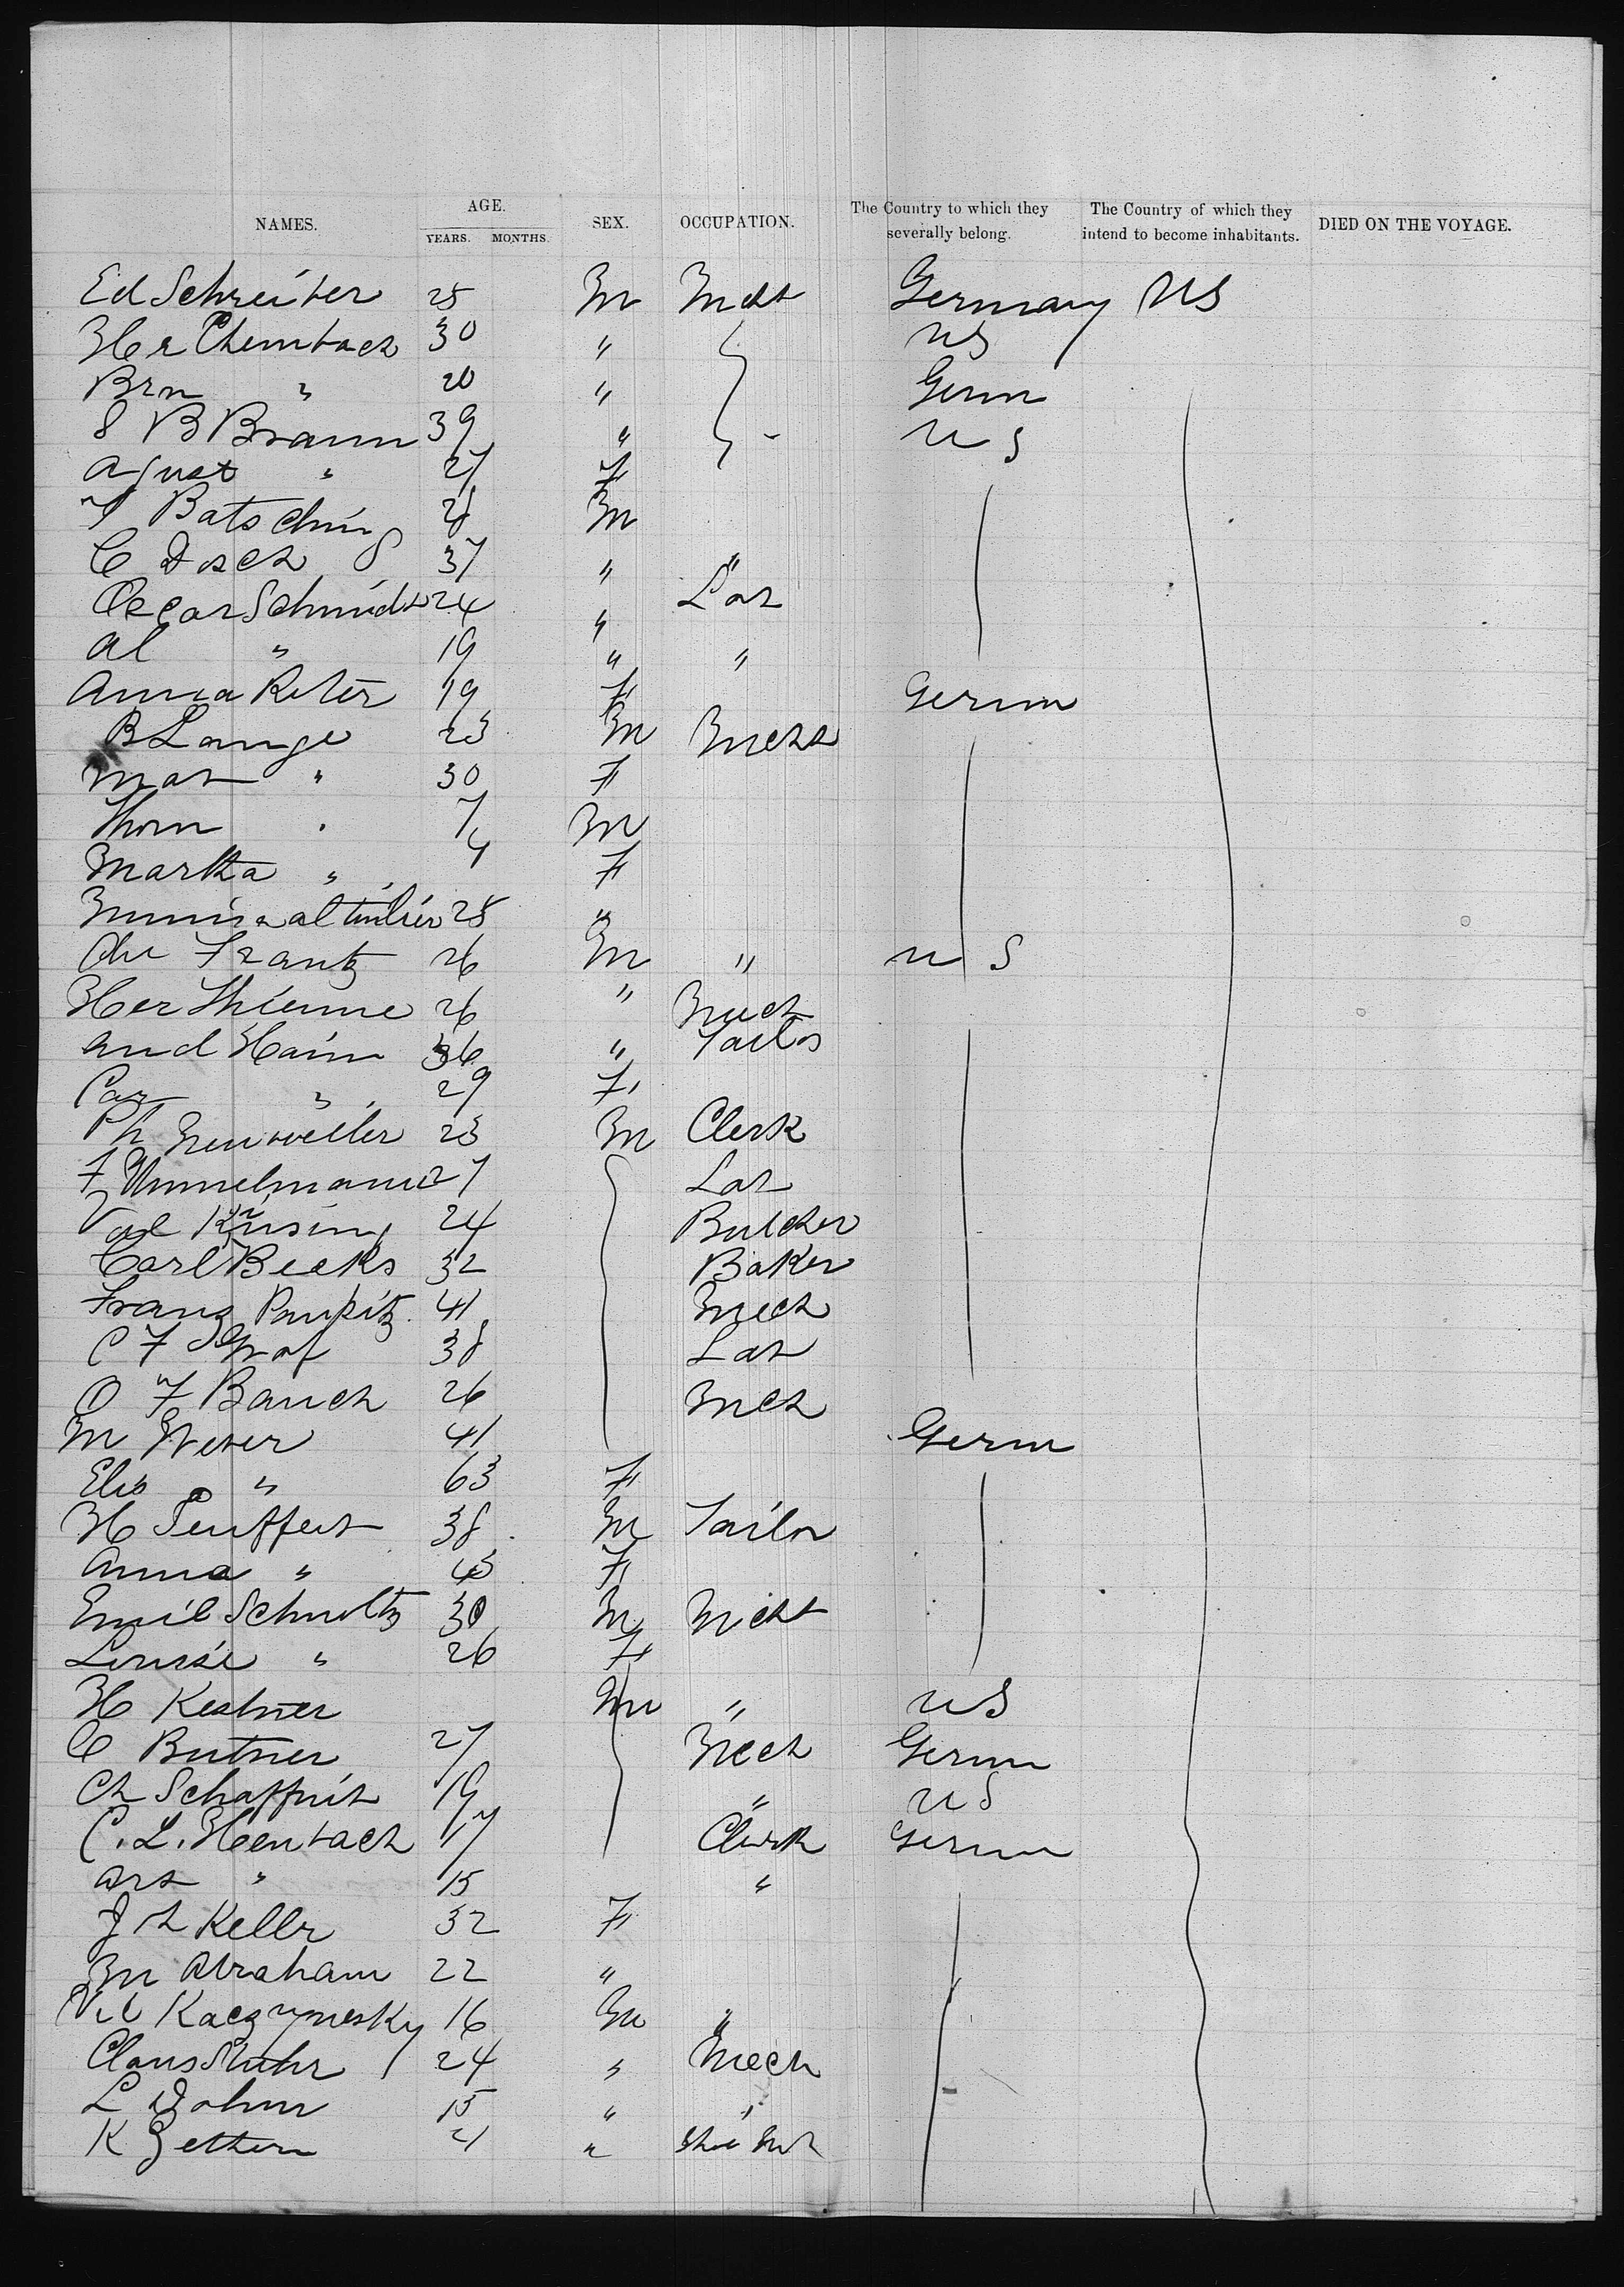 NAMES. AGE. YEARS. MONTHS. SEX. OCCUPATION. The Country to which they severally belong. The Country of which they intend to become inhabitants. DIED ON THE VOYAGE.
Ed Schreiber 25 M Mcht Germany US
Her 30 " US
Brn " 20 " Germ
B Braun 39 " US
" 27 F
Batsching 28 M
C Dosch 37 " "
Oscar Schmidt 24 " Lab
Al " 19 " "
Anna Reter 19 F Germ
B Lange 23 M Mcht
Mar " 30 F
Thom " 7 M
Martha " 4 F
28 "
Frantz 26 M " US
Her Thieme 26 " Mech
And Haim 36 " Tailor
Car " 29 F
Ph Neuweiler 23 M Clerk
F 27 Lab
Val 24 Butcher
Carl Becks 32 Baker
Franz 41 Mech
C F Graf 38 Lab
O F Bauch 26 Mech
M Weber 41 Germ
Elis " 63 F
H Seuffert 38 M Tailor
Anna " 43 F
Emil Schultz 30 M Mcht
Louise " 26 F
H Kestner M " US
C Butner 27 Mech Germ
Ch Schaffnit 19 " US
C. L. Heenbach 17 Clerk Germ
" 15 "
Keller 32 F
M Abraham 22 "
Kaczynesky 16 M "
Claus Stuhr 24 " Mech
L Dohm 15 " "
K 21 " Shoe Mk